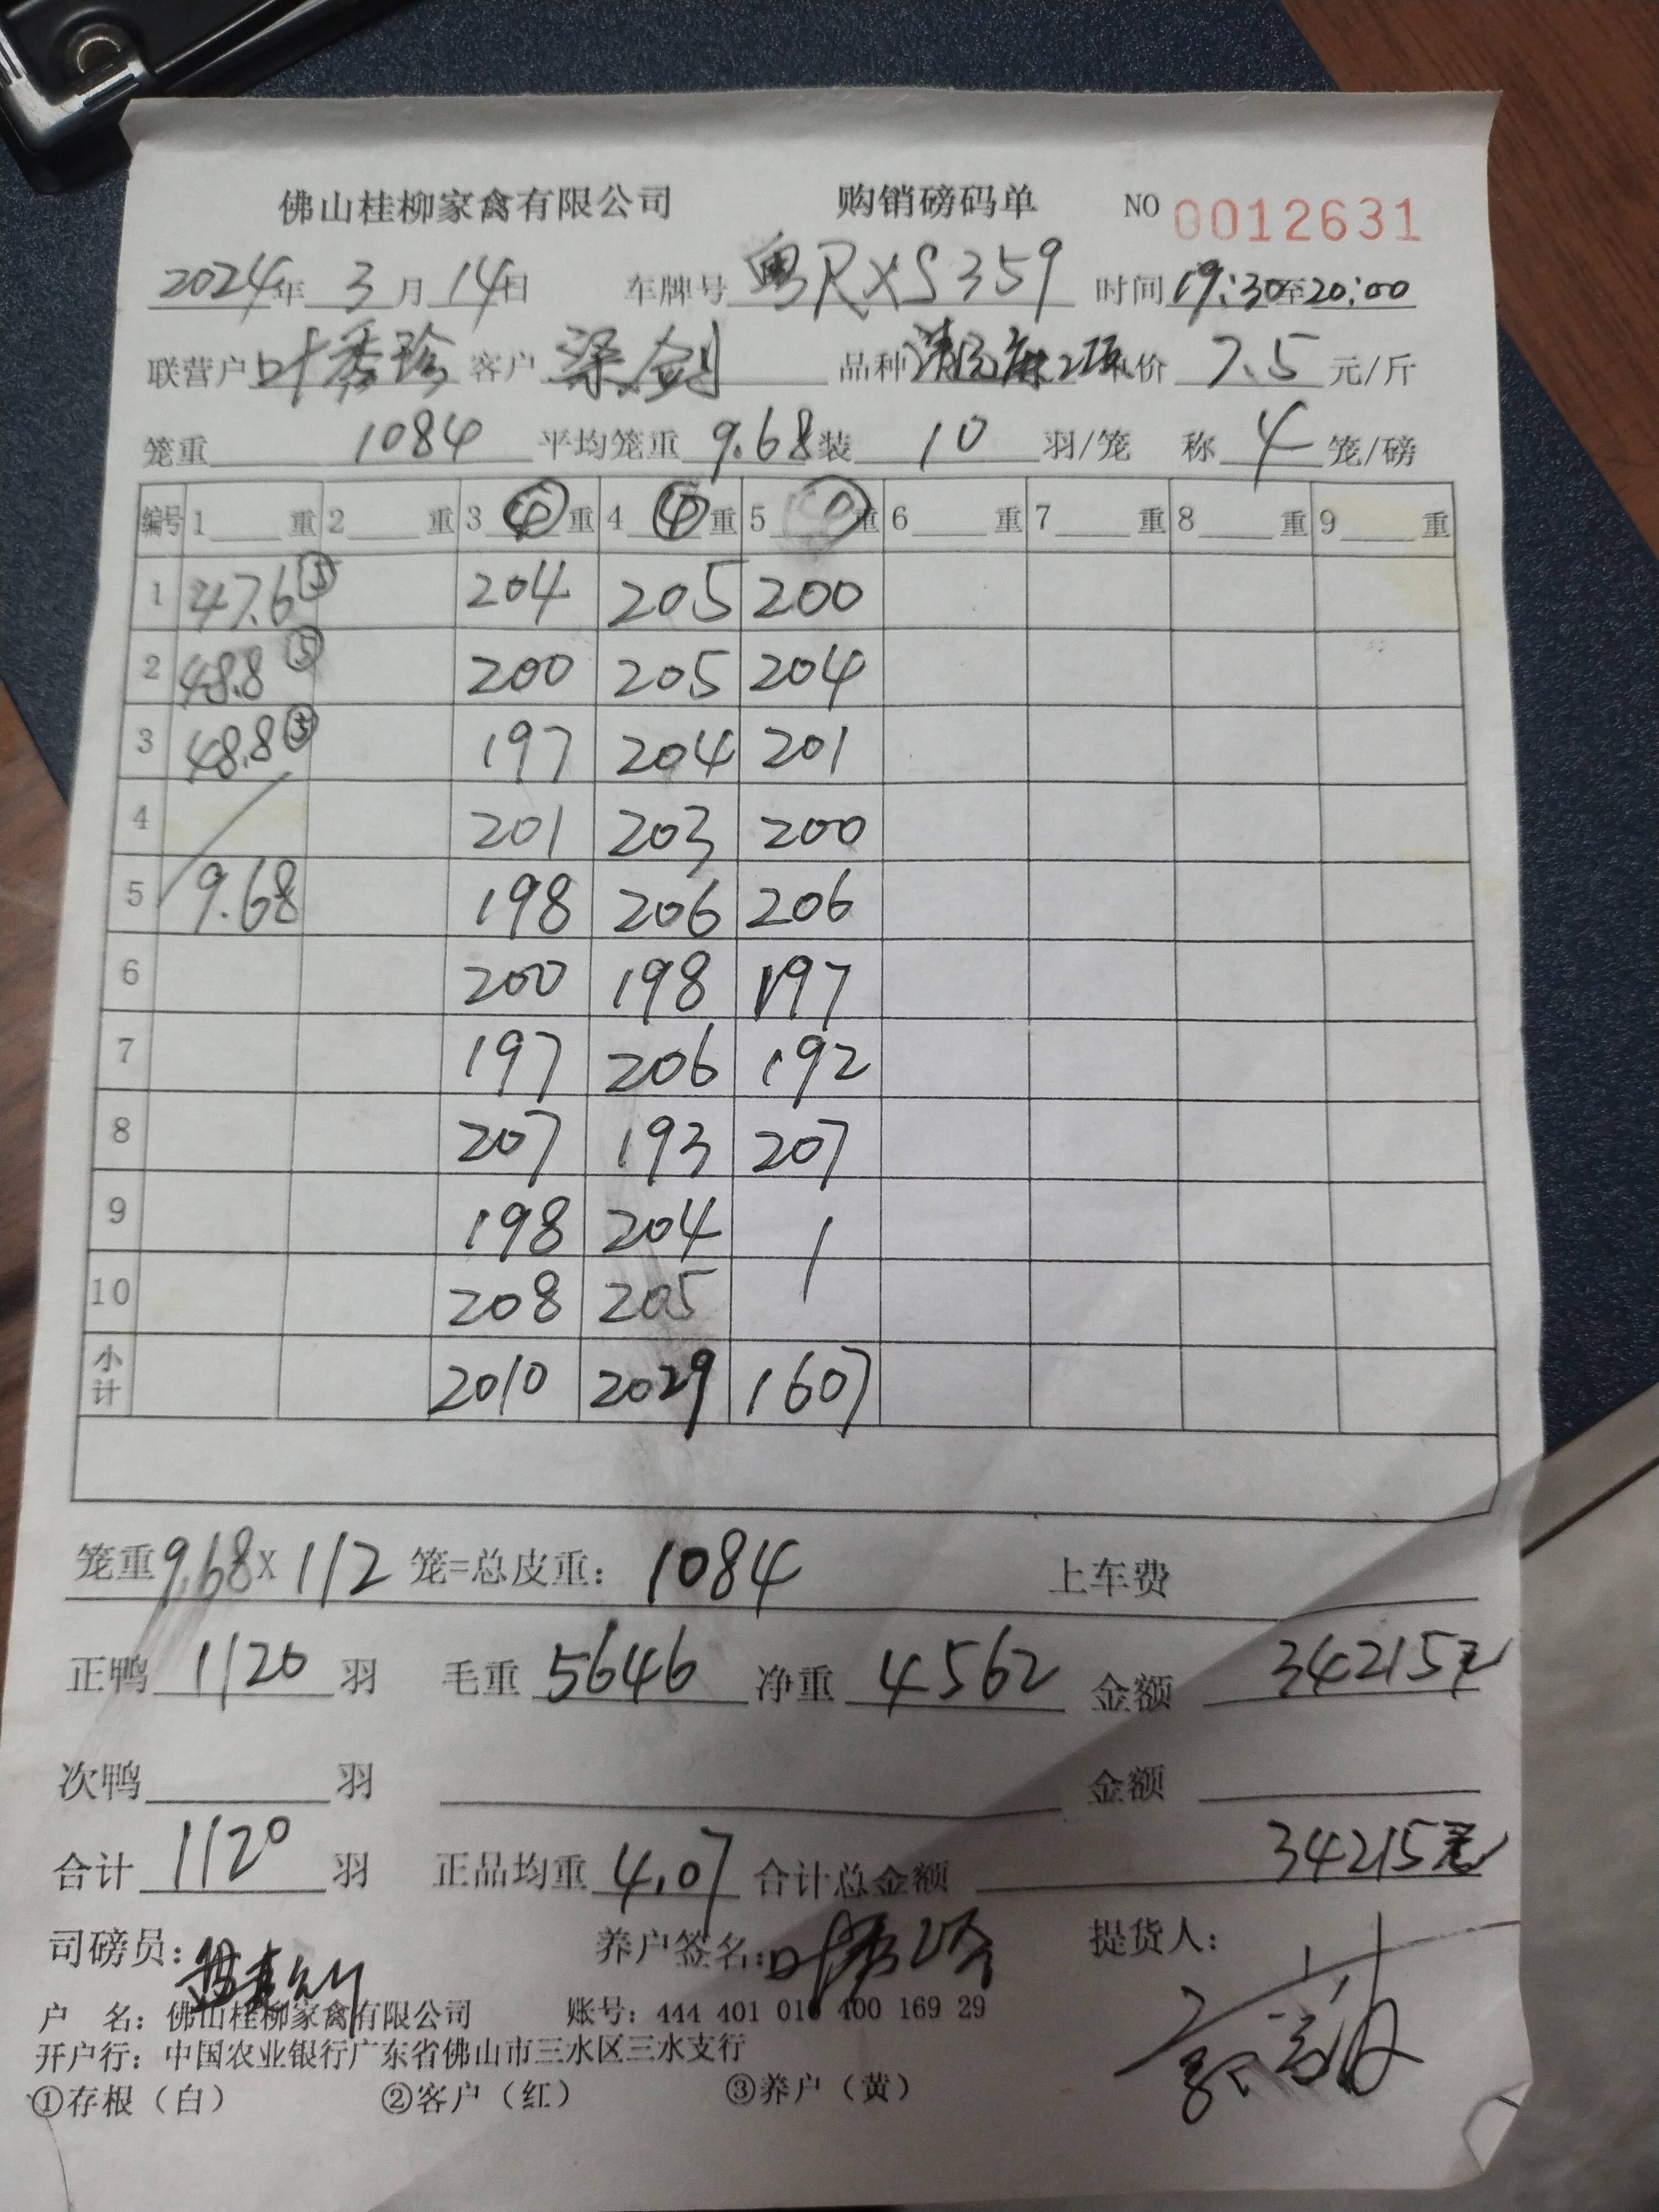 佛山桂柳家禽有限公司 购销磅码单 NO 0012631
2024年3月14日 车牌号 粤RXS359 时间 19:30至20:00
联营户 叶秀珍 客户 梁剑 品种 单价 7.5 元/斤
笼重 1084 平均笼重 9.68 装 10 羽/笼 称 4 笼/磅
编号 1 重 2 重 3 ④ 重 4 ④ 重 5 重 6 重 7 重 8 重 9 重
1 47.6 ⑤ 204 205 200
2 48.8 ⑤ 200 205 204
3 48.8 ⑤ 197 204 201
4 201 203 200
5 9.68 198 206 206
6 200 198 197
7 197 206 192
8 207 193 207
9 198 204
10 208 205
小计 2010 2029 1607
笼重 9.68 X 112 笼=总皮重: 1084 上车费
正鸭 1120 羽 毛重 5646 净重 4562 金额 34215元
次鸭 羽 金额
合计 1120 羽 正品均重 4.07 合计总金额 34215元
司磅员: 养户签名: 提货人:
户 名: 佛山桂柳家禽有限公司 账号: 444 401 010 400 169 29
开户行: 中国农业银行广东省佛山市三水区三水支行
①存根(白) ②客户(红) ③养户(黄)